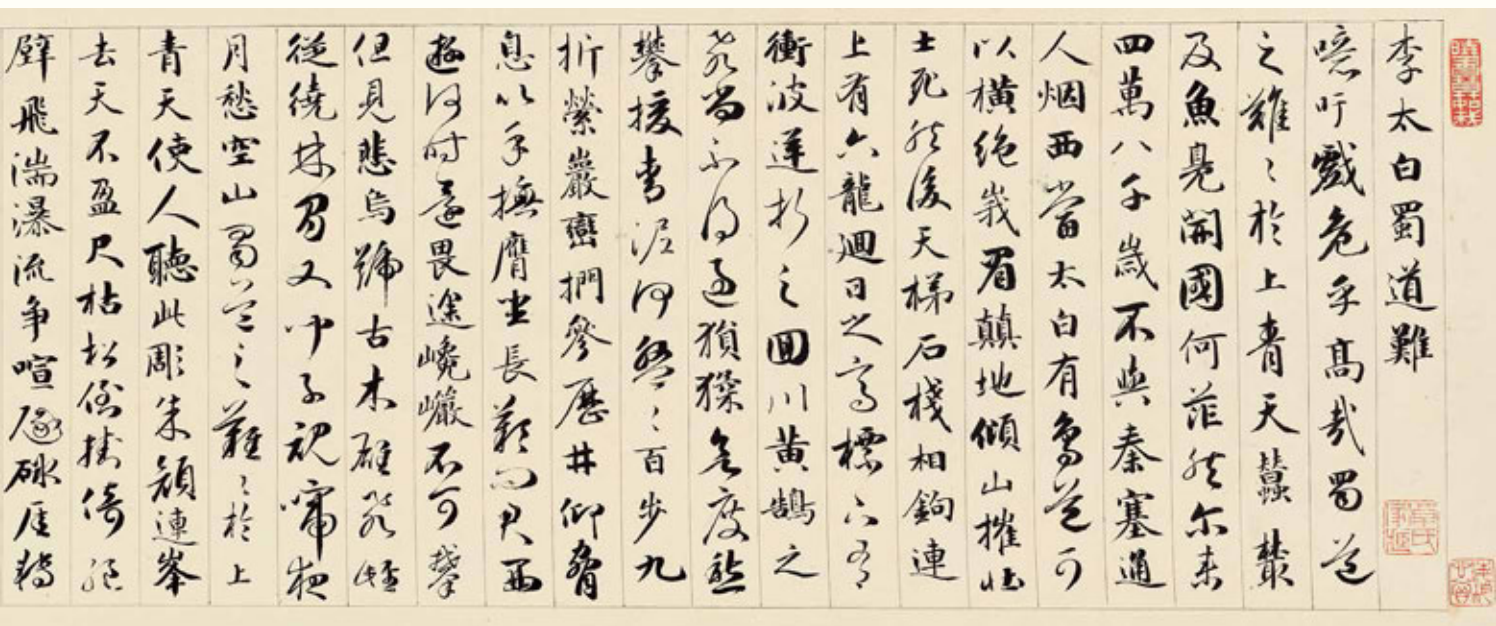 李太白蜀道難
噫吁戲危乎高哉蜀道
之難々於上青天蠶叢
及魚鳧開國何茫然尔来
四萬八千歲不與秦塞通
人烟西當太白有鳥道可
以橫絶峩眉巔地傾山摧壮
士死然後天梯石棧相鉤連
上有六龍迴日之高標下有
衝波逆折之回川黄鶴之
飛尚不得過猿猱欲度愁
攀援青泥何盤々百步九
折縈巖巒捫參歷井仰脅
息以手撫膺坐長歎問君西
遊何時還畏途巉巖不可攀
但見悲鳥號古木雄飛雌
從繞林間又聞子規啼夜
月愁空山蜀道之難々於上
青天使人聽此彫朱顔連峯
去天不盈尺枯松倒挂倚絶
壁飛湍瀑流争喧豗砯厓轉